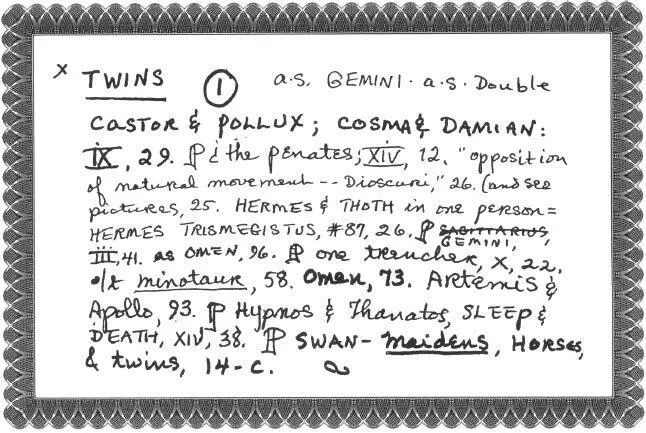 x TWINS ① a.s. GEMINI. a.s. Double
CASTOR & POLLUX; COSMA & DAMIAN:
IX, 29. ¶ & the penates; XIV, 12. "opposition
of natural movement -- Dioscuri," 26. (and see
pictures, 25. HERMES & THOTH in one person =
HERMES TRISMEGISTUS, #87, 26. ¶ SAGITTARIUS,
GEMINI,
III, 41. as OMEN, 96. ¶ one trencher, X, 22.
o/t minotaur, 58. Omen, 73. Artemis &
Apollo, 93. ¶ Hypnos & Thanatos, SLEEP &
DEATH, XIV, 38. ¶ SWAN-maidens, HORSES,
& twins, 14-c.